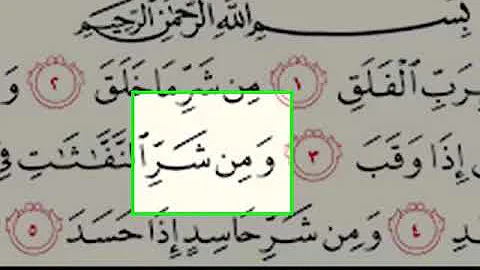 بِسْمِ اللَّهِ الرَّحْمَٰنِ الرَّحِيمِ
بِرَبِّ ٱلْفَلَقِ ١ مِن شَرِّ مَا خَلَقَ ٢ وَ
إِذَا وَقَبَ ٣ وَمِن شَرِّ ٱلنَّفَّٰثَٰتِ فِي
٤ وَمِن شَرِّ حَاسِدٍ إِذَا حَسَدَ ٥